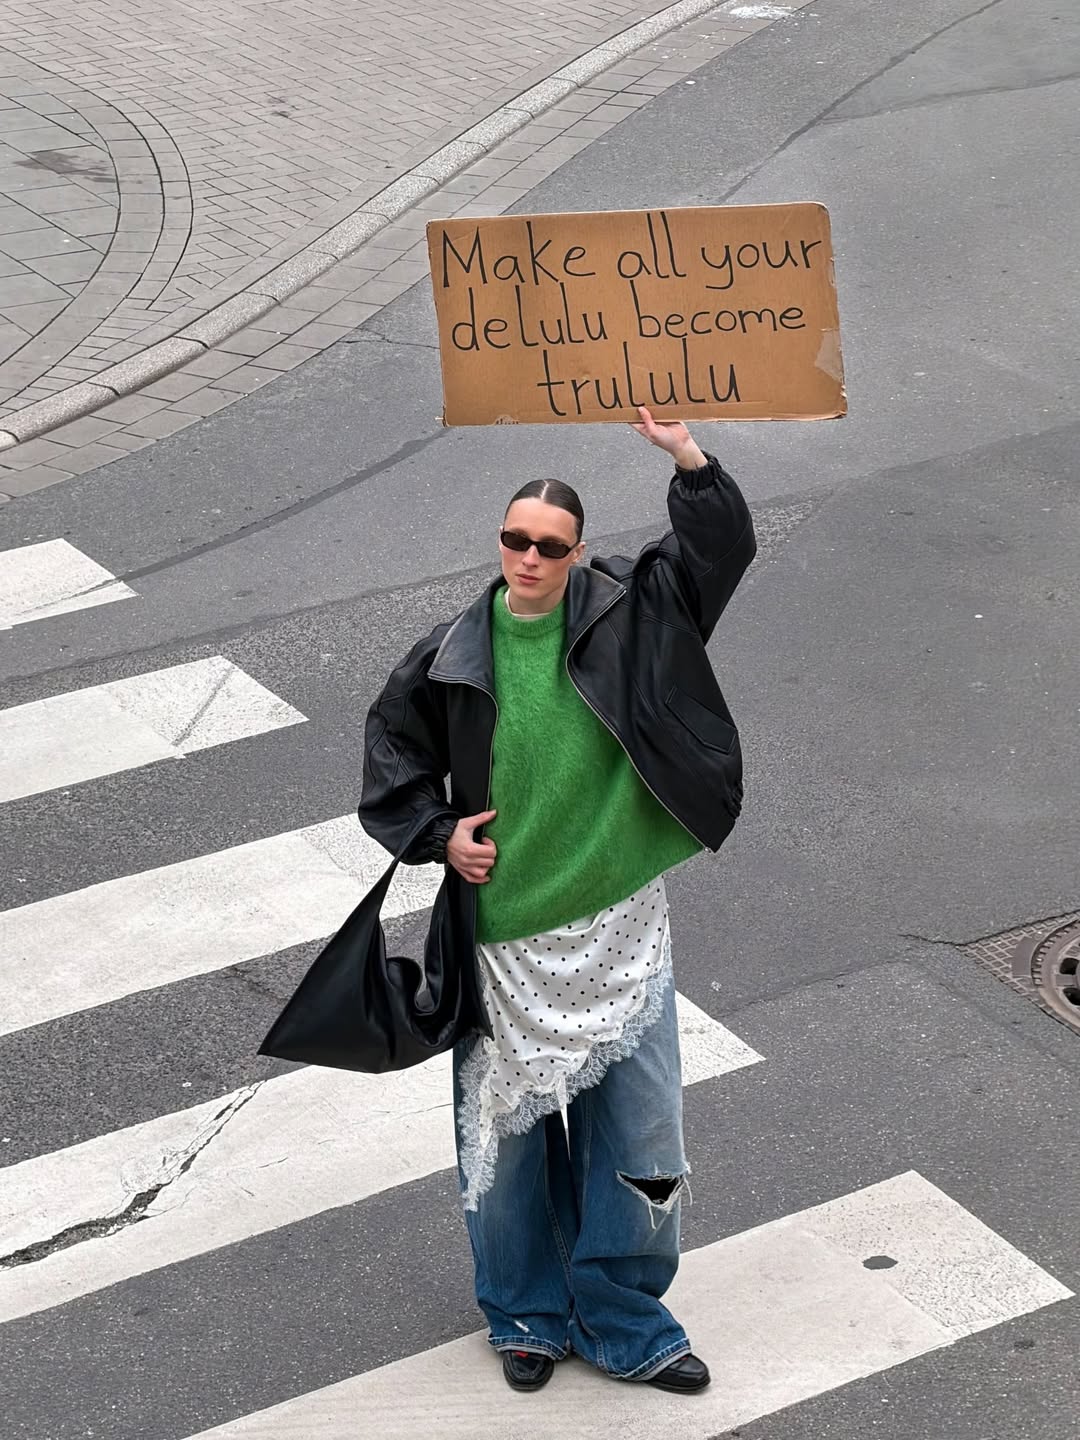 Make all your
delulu become
trululu